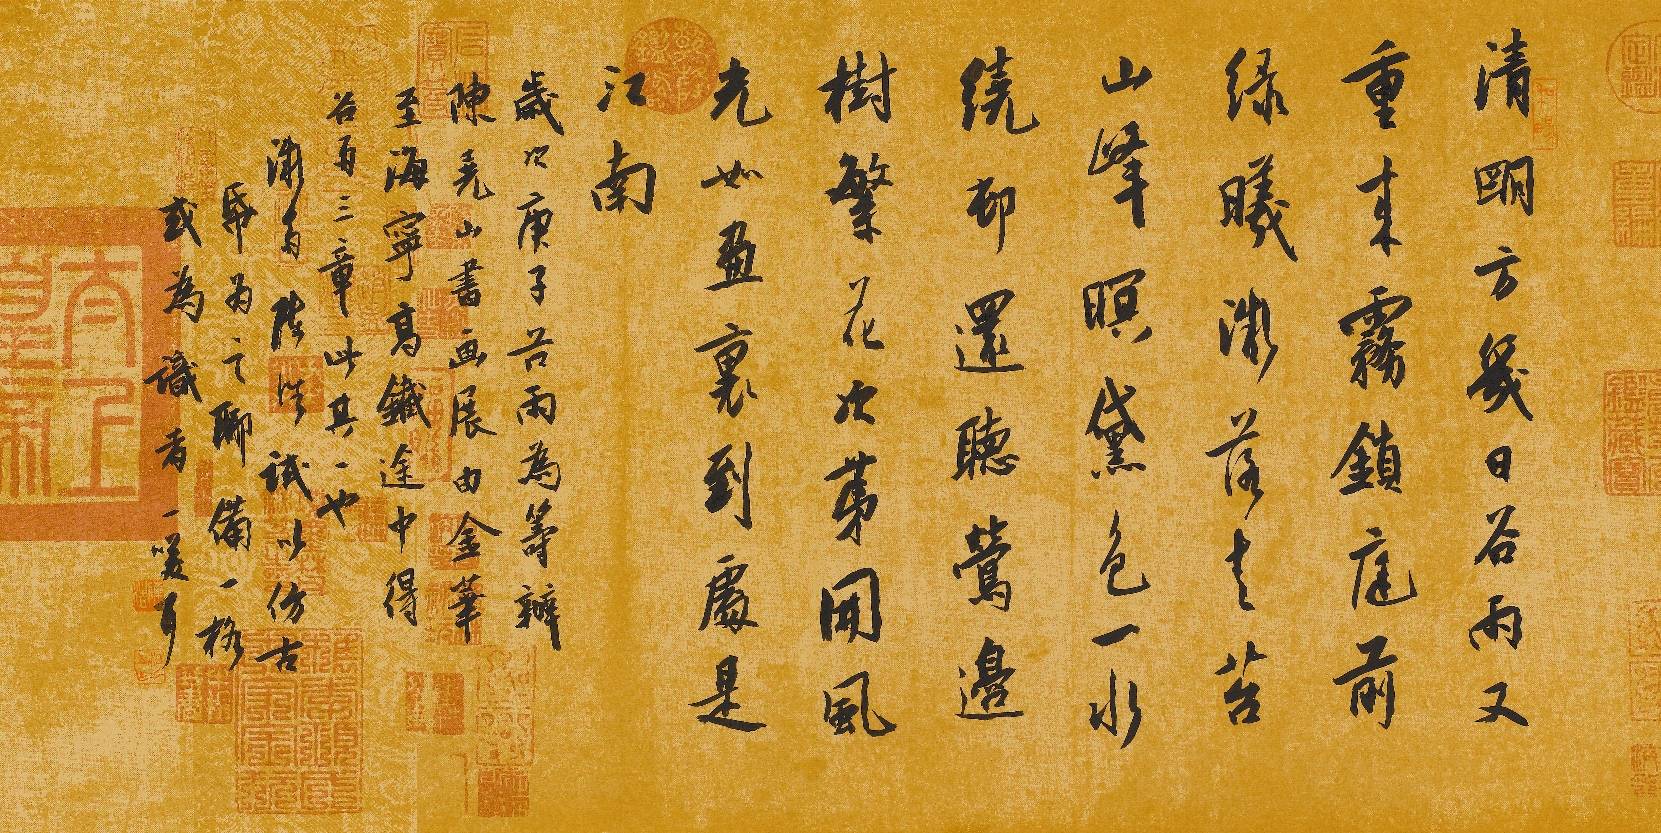 清明方幾日谷雨又
重来霧鎖庭前
绿曦漸落去苔
山峰暝黛色一水
繞邨還聽鶯邊
樹繁花次第開風
光如畫裏到處是
江南
歲次庚子谷雨為籌辦
陳堯山書画展由金華
至海寧高鐵途中得
谷雨三章此其一也
漸有陸 試以仿古
為之聊備一格
或為識者一笑耳